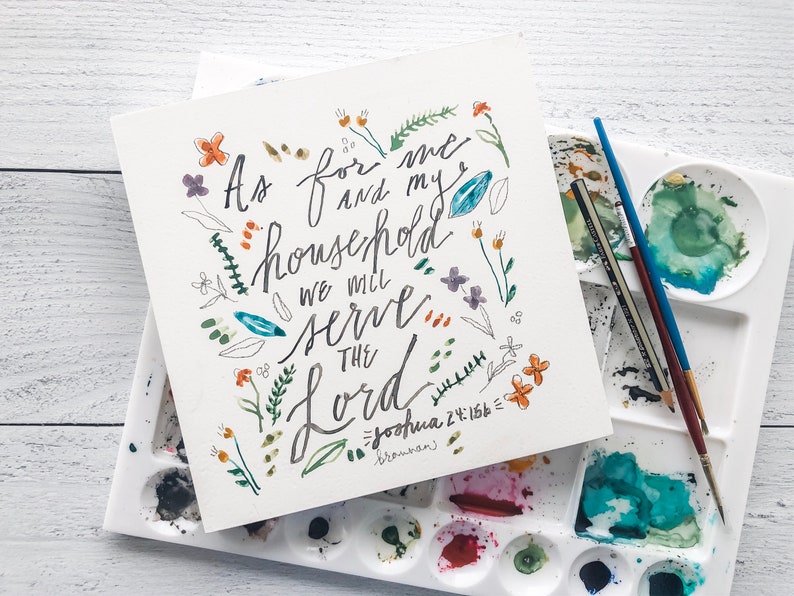 As for me
AND MY
household
WE WILL
serve
THE
Lord
=Joshua 24:15b=
brannan